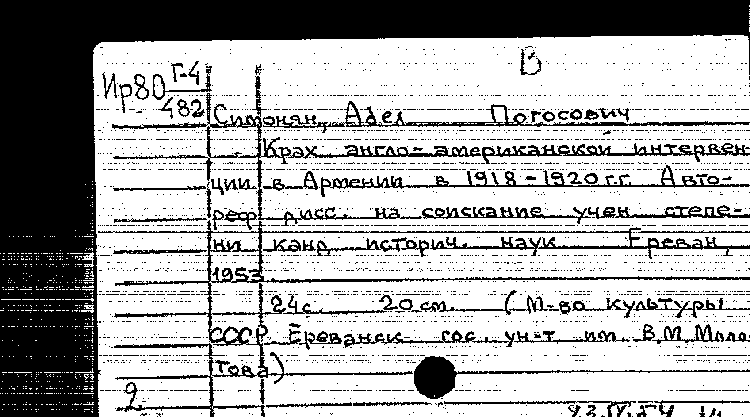 В
Ир80 Г-4
482
Симонян, Абел Погосович
Крах англо-американской интервен
ции в Армении в 1918-1920 г.г. Авто-
реф дисс. на соискание учен степе-
ни канд историч. наук Ереван,
1953
24с. 20 см. (М-во культуры
СССР Ереванск гос. ун-т им В.М Моло
това)
2